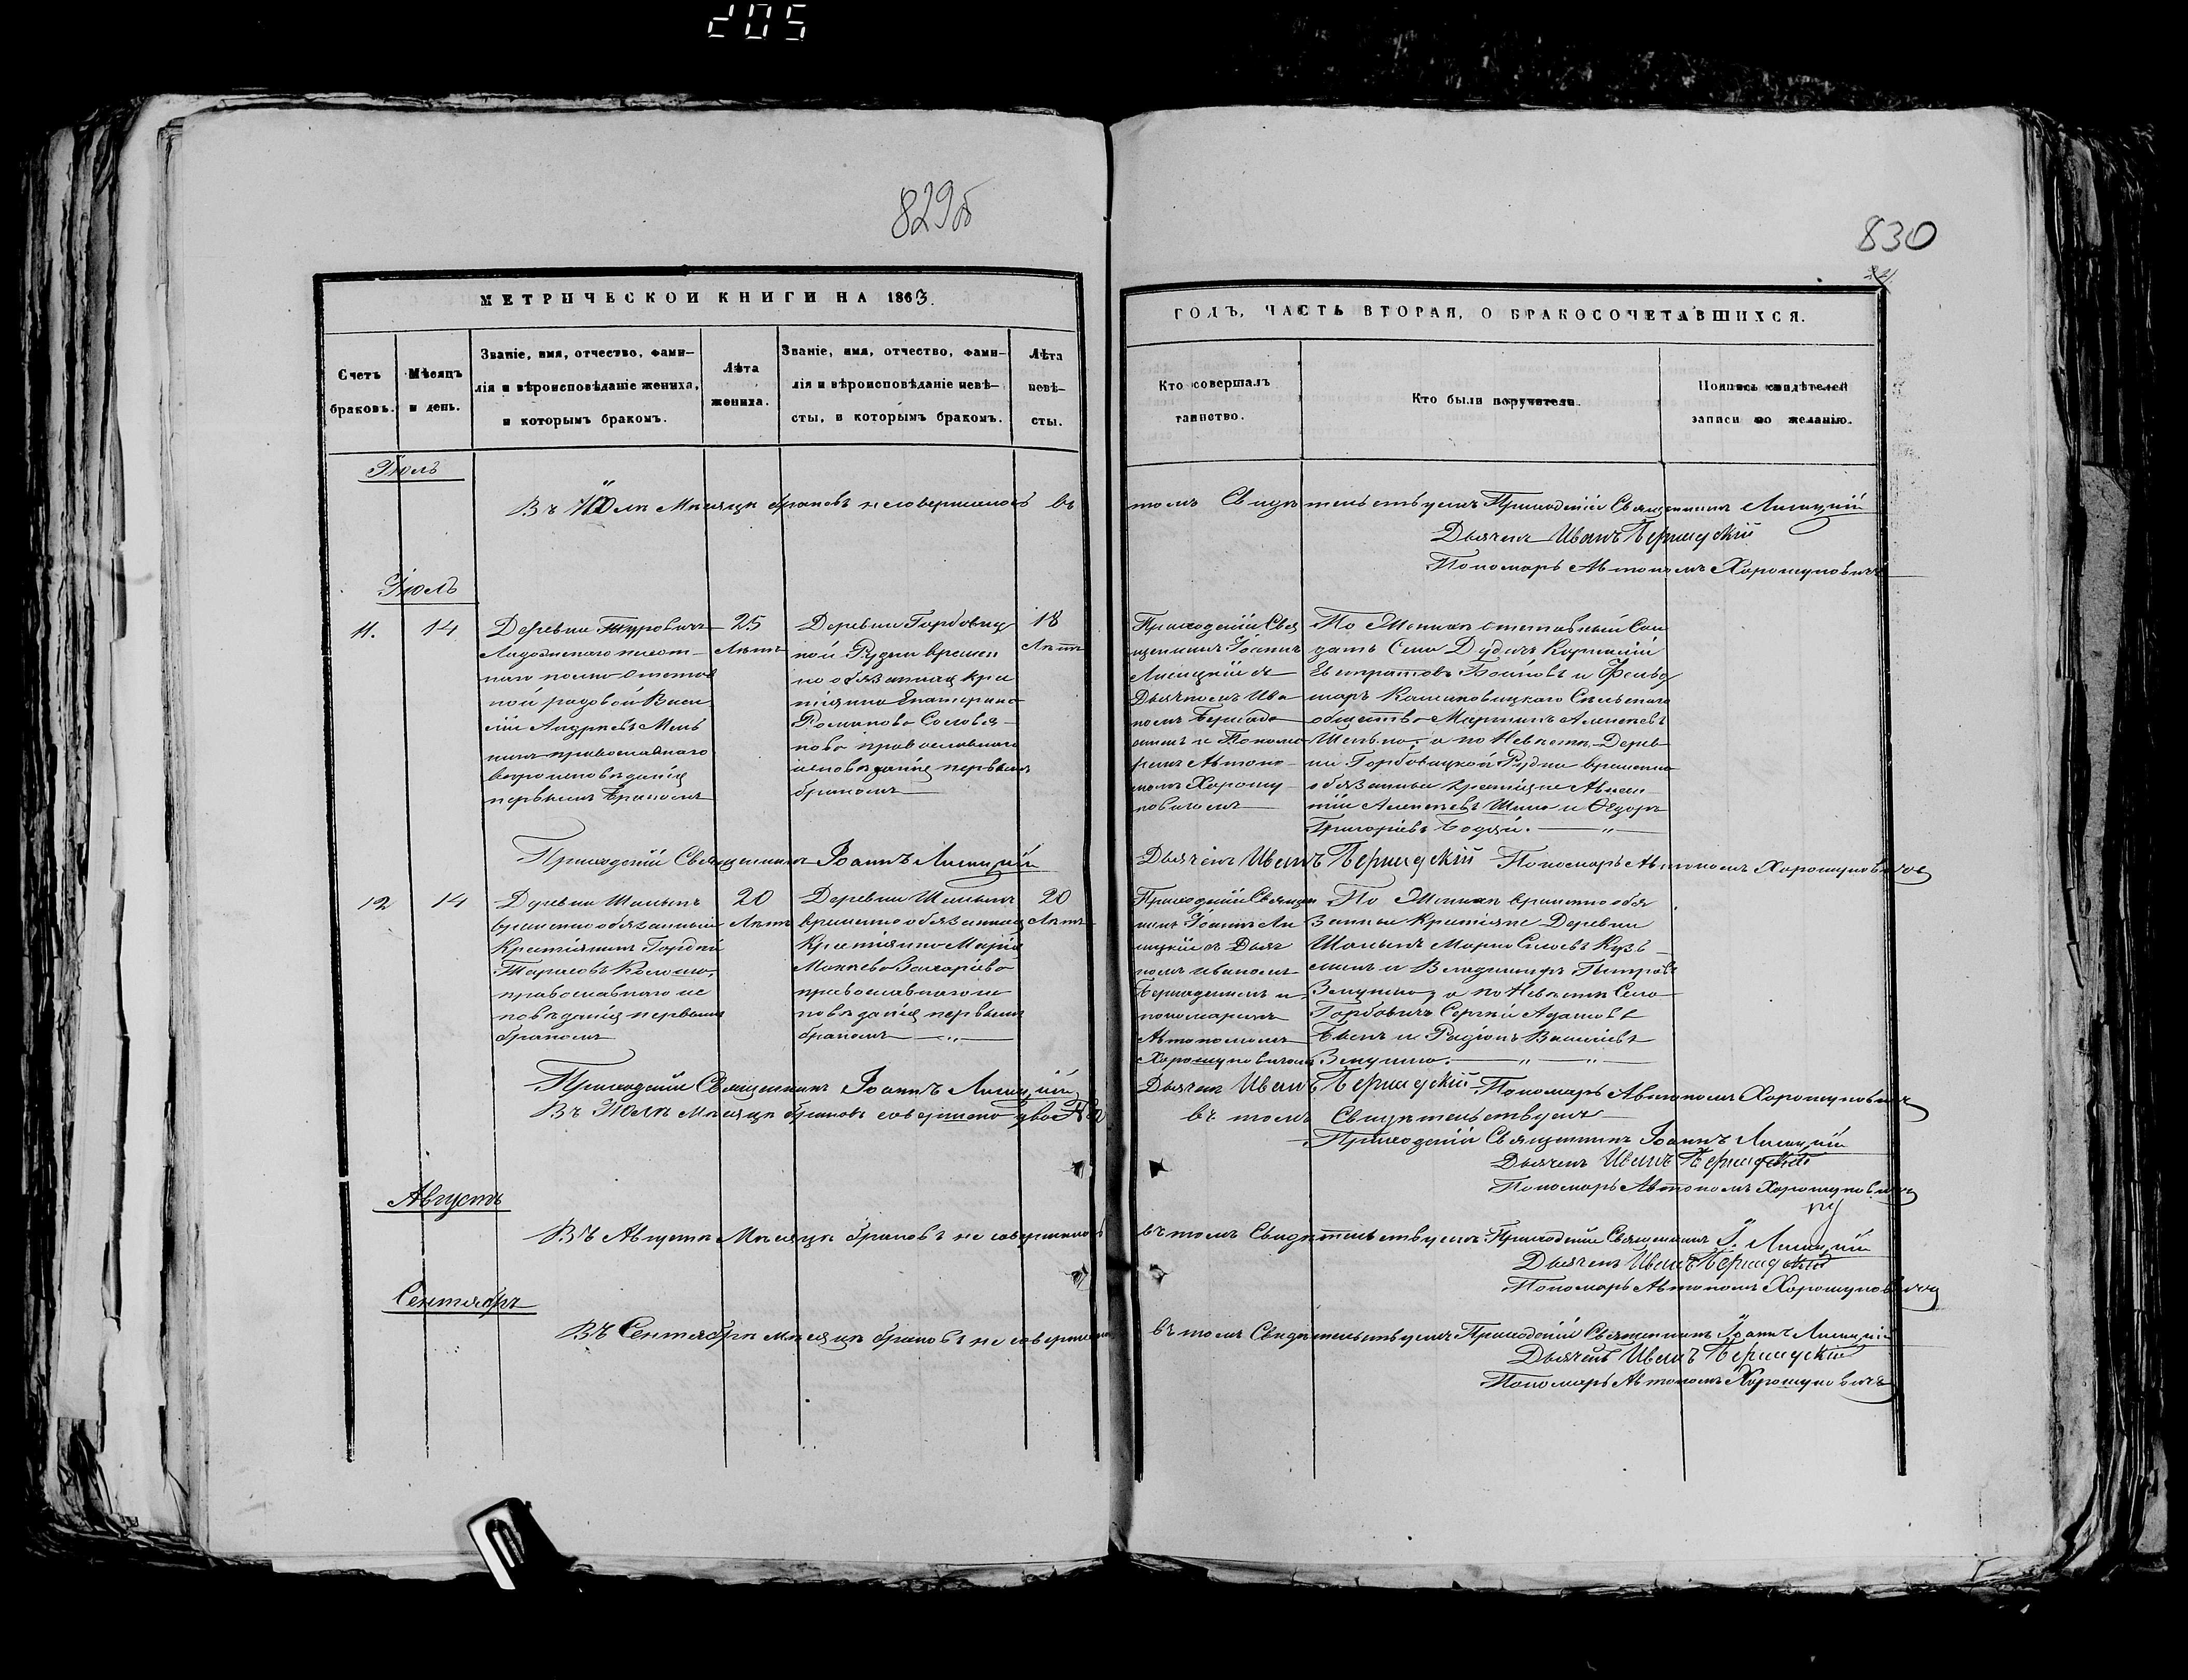 205
829об
830
МЕТРИЧЕСКОЙ КНИГИ НА 1863.
Счетъ
браковъ.
Мѣсяцъ
и день.
Званіе, имя, отчество, фами-
лія и вѣроисповѣданіе жениха,
и которымъ бракомъ.
Лѣта
жениха.
Званіе, имя, отчество, фами-
лія и вѣроисповѣданіе невѣ-
сты, и которымъ бракомъ.
Лѣта
невѣ-
сты.
ГОДЪ, ЧАСТЬ ВТОРАЯ, О БРАКОСОЧЕТАВШИХСЯ.
Кто совершалъ
таинство.
Кто были поручители.
Подпись свидѣтелей
записи по желанію.
Мѣсяцѣ браковъ не совершалось въ
томъ Свидѣтельствуемъ Приходскій Священникъ Лисицкій
Дьячекъ Иванъ
Пономарь Автономъ Хорошуновичъ
Іюль
11.
14
Деревни
ной рядовой Васи
лій Андреевъ Мель
никъ православнаго
вѣроисповѣданія
первымъ бракомъ
25
Лѣтъ
Деревни Горбовиц
кой Рудни времен
но обязанная кре
стьянка Екатерина
Романова
нова православнаго
исповѣданія первымъ
бракомъ
18
Лѣтъ
Приходскій Свя
щенникъ Іоаннъ
Лисицкій съ
Дьячкомъ Ива
номъ
и Понома
ремъ Автоно
момъ Хорошу
новичемъ
По Женихѣ отставный Сол
датъ Села Дудичъ
общества Мартинъ Алексѣевъ
а по Невѣстѣ Дерев
ни Горбовицкой Рудни временно
обязанныи крестьяне
Алексѣевъ и Ѳедоръ
Григоріевъ
Приходскій Священникъ Іоаннъ Лисицкій
Дьячекъ Иванъ
Пономарь Автономъ Хорошуновичъ
12
14
Деревни
временно обязанный
Крестьянинъ Гордѣй
Тарасовъ
православнаго ис
повѣданія первымъ
бракомъ
20
Лѣтъ
Деревни
временно обязанная
Крестьянка Марія
православнаго ис
повѣданія первымъ
бракомъ
20
Лѣтъ
Приходскій Священ
никъ Іоаннъ Ли
сицкій съ Дьяч
комъ Иваномъ
и
пономаремъ
Автономомъ
Хорошуновичемъ
По Женихѣ временно обя
занныи Крестьяне Деревни
и Владимиръ Петровъ
а по Невѣстѣ Села
Горбовичъ Сергѣй Адамовъ
и Радіонъ Васильевъ
Приходскій Священникъ Іоаннъ Лисицкій
Дьячекъ Иванъ
Пономарь Автономъ Хорошуновичъ
Въ Іюлѣ Мѣсяцѣ браковъ совершено два
въ томъ Свидѣтельствуемъ
Приходскій Священникъ Іоаннъ Лисицкій
Дьячекъ Иванъ
Пономарь Автономъ Хорошуновичъ
Августъ
Въ Августѣ Мѣсяцѣ браковъ не совершалось
въ томъ Свидѣтельствуемъ Приходскій Священникъ І. Лисицкій
Дьячекъ Иванъ
Пономарь Автономъ Хорошуновичъ
Сентябрь
Въ Сентябрѣ мѣсяцѣ браковъ не совершалось
въ томъ Свидѣтельствуемъ Приходскій Священникъ Іоаннъ Лисицкій
Дьячекъ Иванъ
Пономарь Автономъ Хорошуновичъ